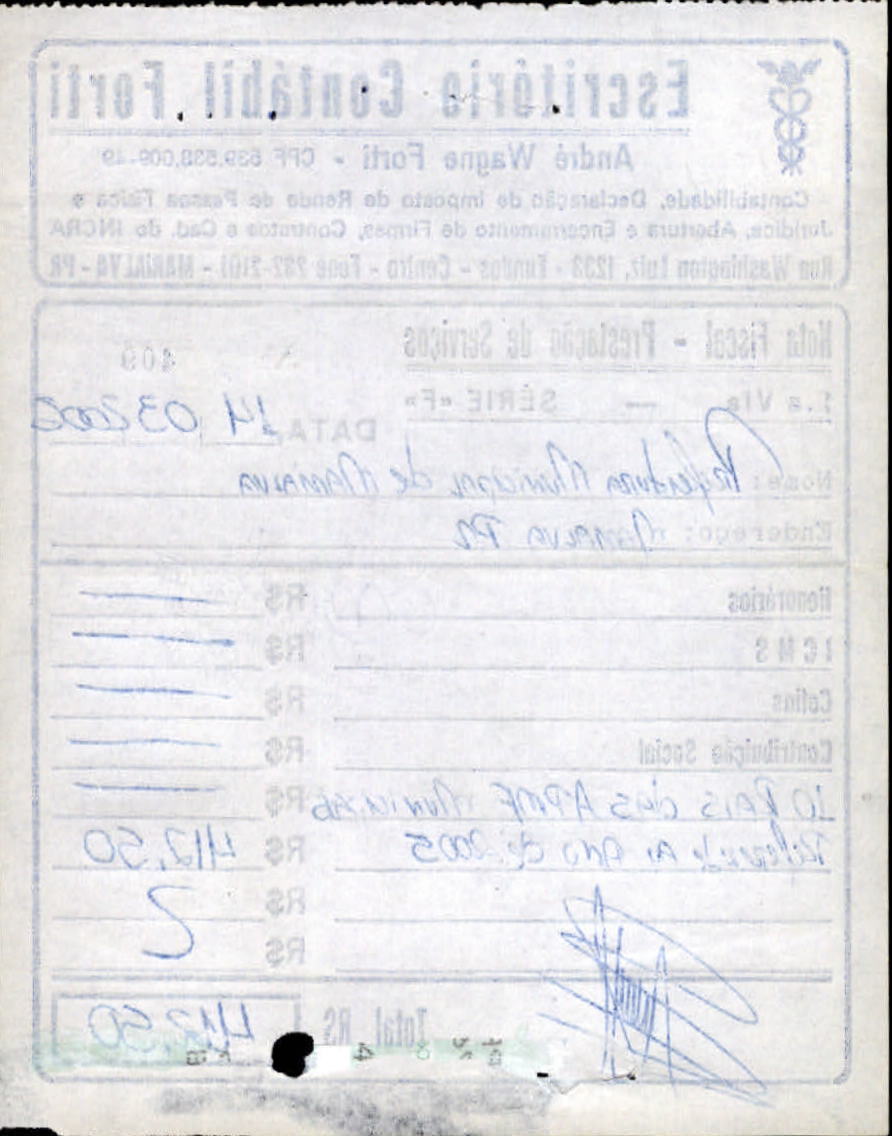 Escritório Contábil Forti
André Wagne Forti - CPF 639.538.009-49
Contabilidade, Declaração de Imposto de Renda de Pessoa Física e
Jurídica, Abertura e Encerramento de Firmas, Contratos e Cad. do INCRA
Rua Washington Luiz, 1233 - Fundos - Centro - Fone 232-2101 - MARIALVA - PR
Nota Fiscal - Prestação de Serviços
409
1.a Via — SÉRIE «F»
DATA, 14 03 2006
Nome: Prefeitura Municipal de Marialva
Endereço: Marialva PR
Honorários R$
ICMS R$
Cofins R$
Contribuição Social R$
10 RAIS das APMF Municipais R$
Referente ao ano de 2005 R$ 412,50
R$
R$
Total R$ 412,50